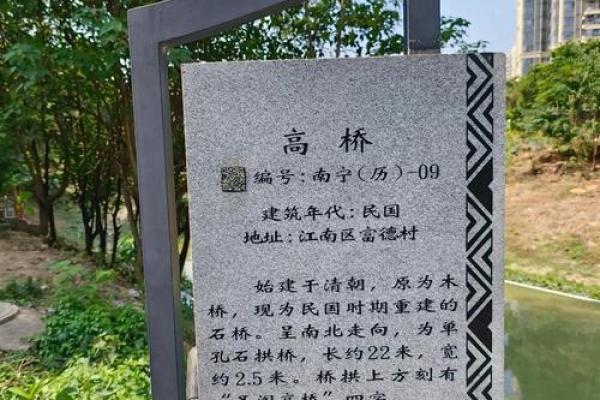 高桥
编号:南宁(历)-09
建筑年代:民国
地址:江南区富德村
始建于清朝，原为木
桥，现为民国时期重建的
石桥。呈南北走向，为单
孔石拱桥，长约22米，宽
约2.5米。桥拱上方刻有
高桥”四字